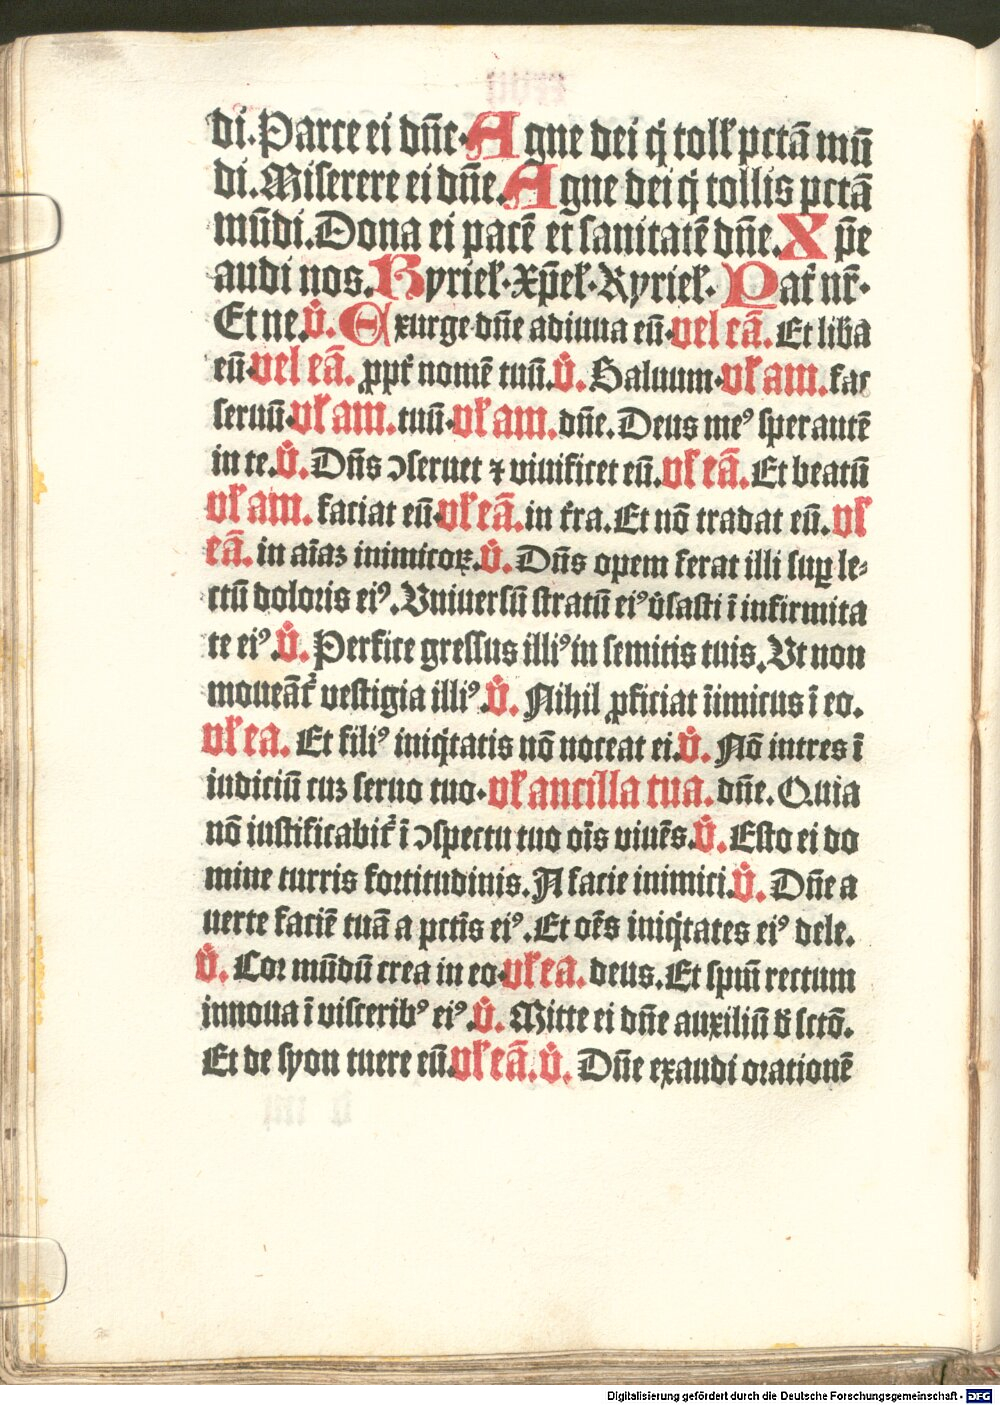 di. Parce ei dn̄e. Agne dei q̇ tolł pctā mū
di. Miserere ei dn̄e. Agne dei q̇ tollis pctā
mūdi. Dona ei pacē et sanitatē dn̄e. Xp̄e
audi nos. Kyrieł. Xp̄eł. Kyrieł. Pat̄ nr̄.
Et ne. v̇. Exurge dn̄e adiuua eū. vel eā. Et liba
eū. vel eā. ꝓpt̄ nomē tuū. v̇. Saluum. vł am. fac
seruū. vł am. tuū. vł am. dn̄e. Deus meꝰ sperantē
in te. v̇. Dn̄s ↄseruet ⁊ viuificet eū. vł eā. Et beatū
vł am. faciat eū. vł eā. in t̄ra. Et nō tradat eū. vł
eā. in aīaꝫ inimicoꝝ. v̇. Dn̄s opem ferat illi suꝑ le⸗
ctū doloris eiꝰ. Vniuersū stratū eiꝰ v̇sasti ī infirmita
te eiꝰ. v̇. Perfice gressus illiꝰ in semitis tuis. Vt non
moueāt̄ vestigia illiꝰ. v̇. Nihil ꝓficiat īimicus ī eo.
vł ea. Et filiꝰ iniq̇tatis nō noceat ei. v̇. Nō intres ī
iudiciū cuꝫ seruo tuo. vł ancilla tua. dn̄e. Quia
nō iustificabit̄ ī ↄspectu tuo oīs viuēs. v̇. Esto ei do
mine turris fortitudinis. A facie inimici. v̇. Dn̄e a
uerte faciē tuā a pctīs eiꝰ. Et oēs iniq̇tates eiꝰ dele.
v̇. Cor mūdū crea in eo. vł ea. deus. Et spm̄ rectum
innoua ī visceribꝰ eiꝰ. v̇. Mitte ei dn̄e auxiliū đ sctō.
Et de syon tuere eū. vł eā. v̇. Dn̄e exaudi orationē
Digitalisierung gefördert durch die Deutsche Forschungsgemeinschaft - DFG